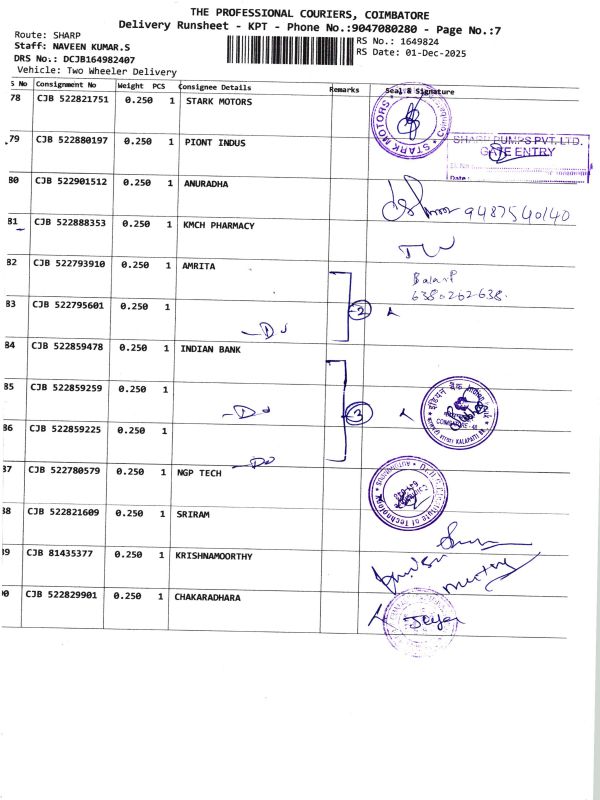 THE PROFESSIONAL COURIERS, COIMBATORE
Delivery Runsheet - KPT - Phone No.:9047080280 - Page No.:7
Route: SHARP
RS No.: 1649824
Staff: NAVEEN KUMAR.S
RS Date: 01-Dec-2025
DRS No.: DCJB164982407
Vehicle: Two Wheeler Delivery
S No Consignment No Weight PCS Consignee Details Remarks Seal & Signature
78 CJB 522821751 0.250 1 STARK MOTORS
STARK MOTORS
79 CJB 522880197 0.250 1 PIONT INDUS
SHARP PUMPS PVT. LTD.
GATE ENTRY
Date :
80 CJB 522901512 0.250 1 ANURADHA
9487540140
81 CJB 522888353 0.250 1 KMCH PHARMACY
82 CJB 522793910 0.250 1 AMRITA
Bala.P
6380262638.
83 CJB 522795601 0.250 1
2
Do
84 CJB 522859478 0.250 1 INDIAN BANK
85 CJB 522859259 0.250 1
Do
3
COIMBATORE
KALAPATTI
86 CJB 522859225 0.250 1
Do
87 CJB 522780579 0.250 1 NGP TECH
Institute of Technology
88 CJB 522821609 0.250 1 SRIRAM
89 CJB 81435377 0.250 1 KRISHNAMOORTHY
90 CJB 522829901 0.250 1 CHAKARADHARA